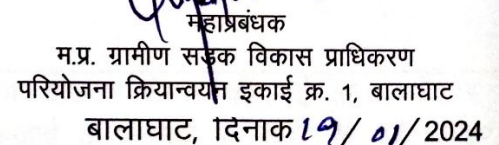 महाप्रबंधक
म.प्र. ग्रामीण सड़क विकास प्राधिकरण
परियोजना क्रियान्वयन इकाई क्र. 1, बालाघाट
बालाघाट, दिनाक 19/01/2024